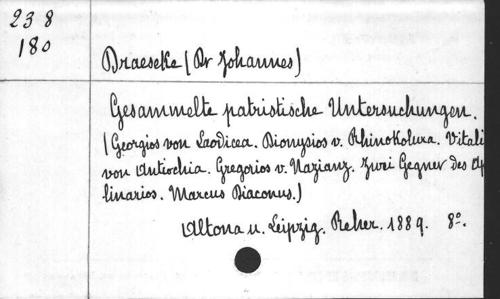 238
180
Draeseke (Dr Johannes)
Gesammelte patristische Untersuchungen.
(Georgios von Laodicea. Dionysios v. Rhinokolura. Vitali
von Antiochia. Gregorios v. Nazianz. Zwei Gegner des Ap
linarios. Marcus Diaconus.)
Altona u. Leipzig. Reher. 1889. 8º.